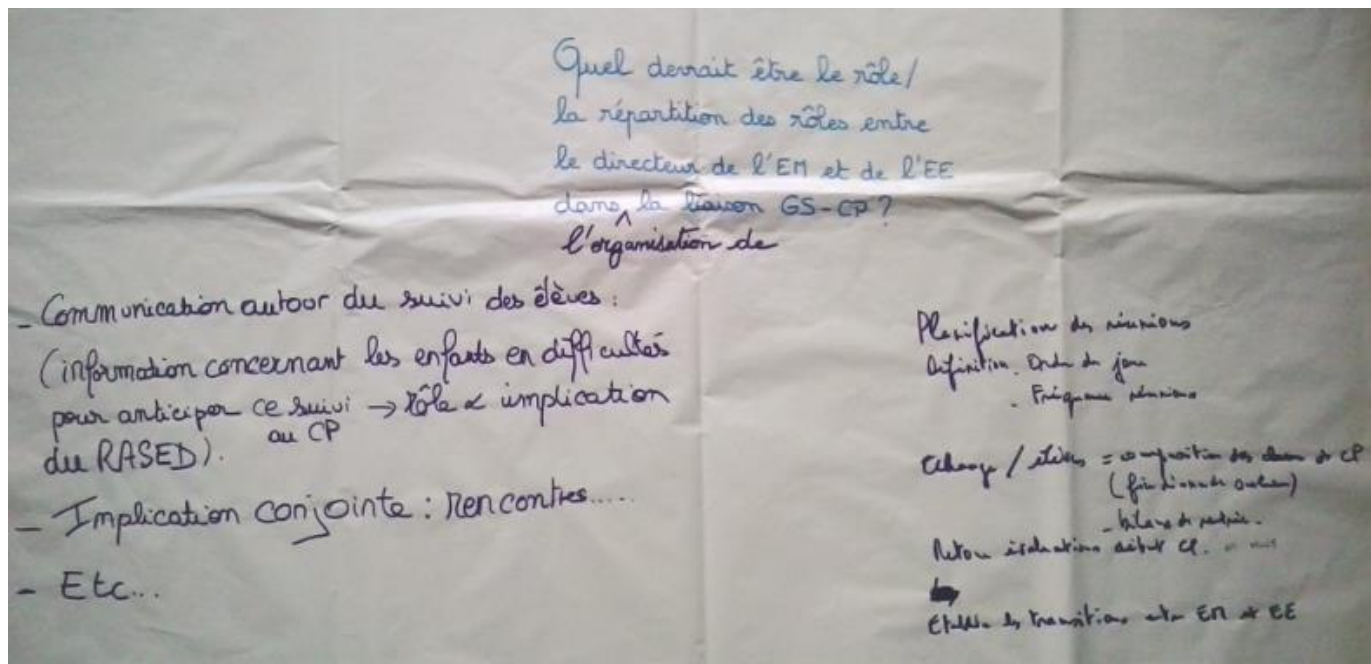 Quel devrait être le rôle/
la répartition des rôles entre
le directeur de l'EM et de l'EE
dans la liaison GS-CP ?
l'organisation de
- Communication autour du suivi des élèves :
(information concernant les enfants en difficultés
pour anticiper ce suivi → rôle & implication
au CP
du RASED).
- Implication conjointe : rencontres.....
- Etc...
Planification des réunions
Définition. Ordre du jour
- Fréquence réunions
Echange / élèves = composition des classes de CP
- bilans de
Retour évaluations début CP.
Etablir les transitions entre EM et EE